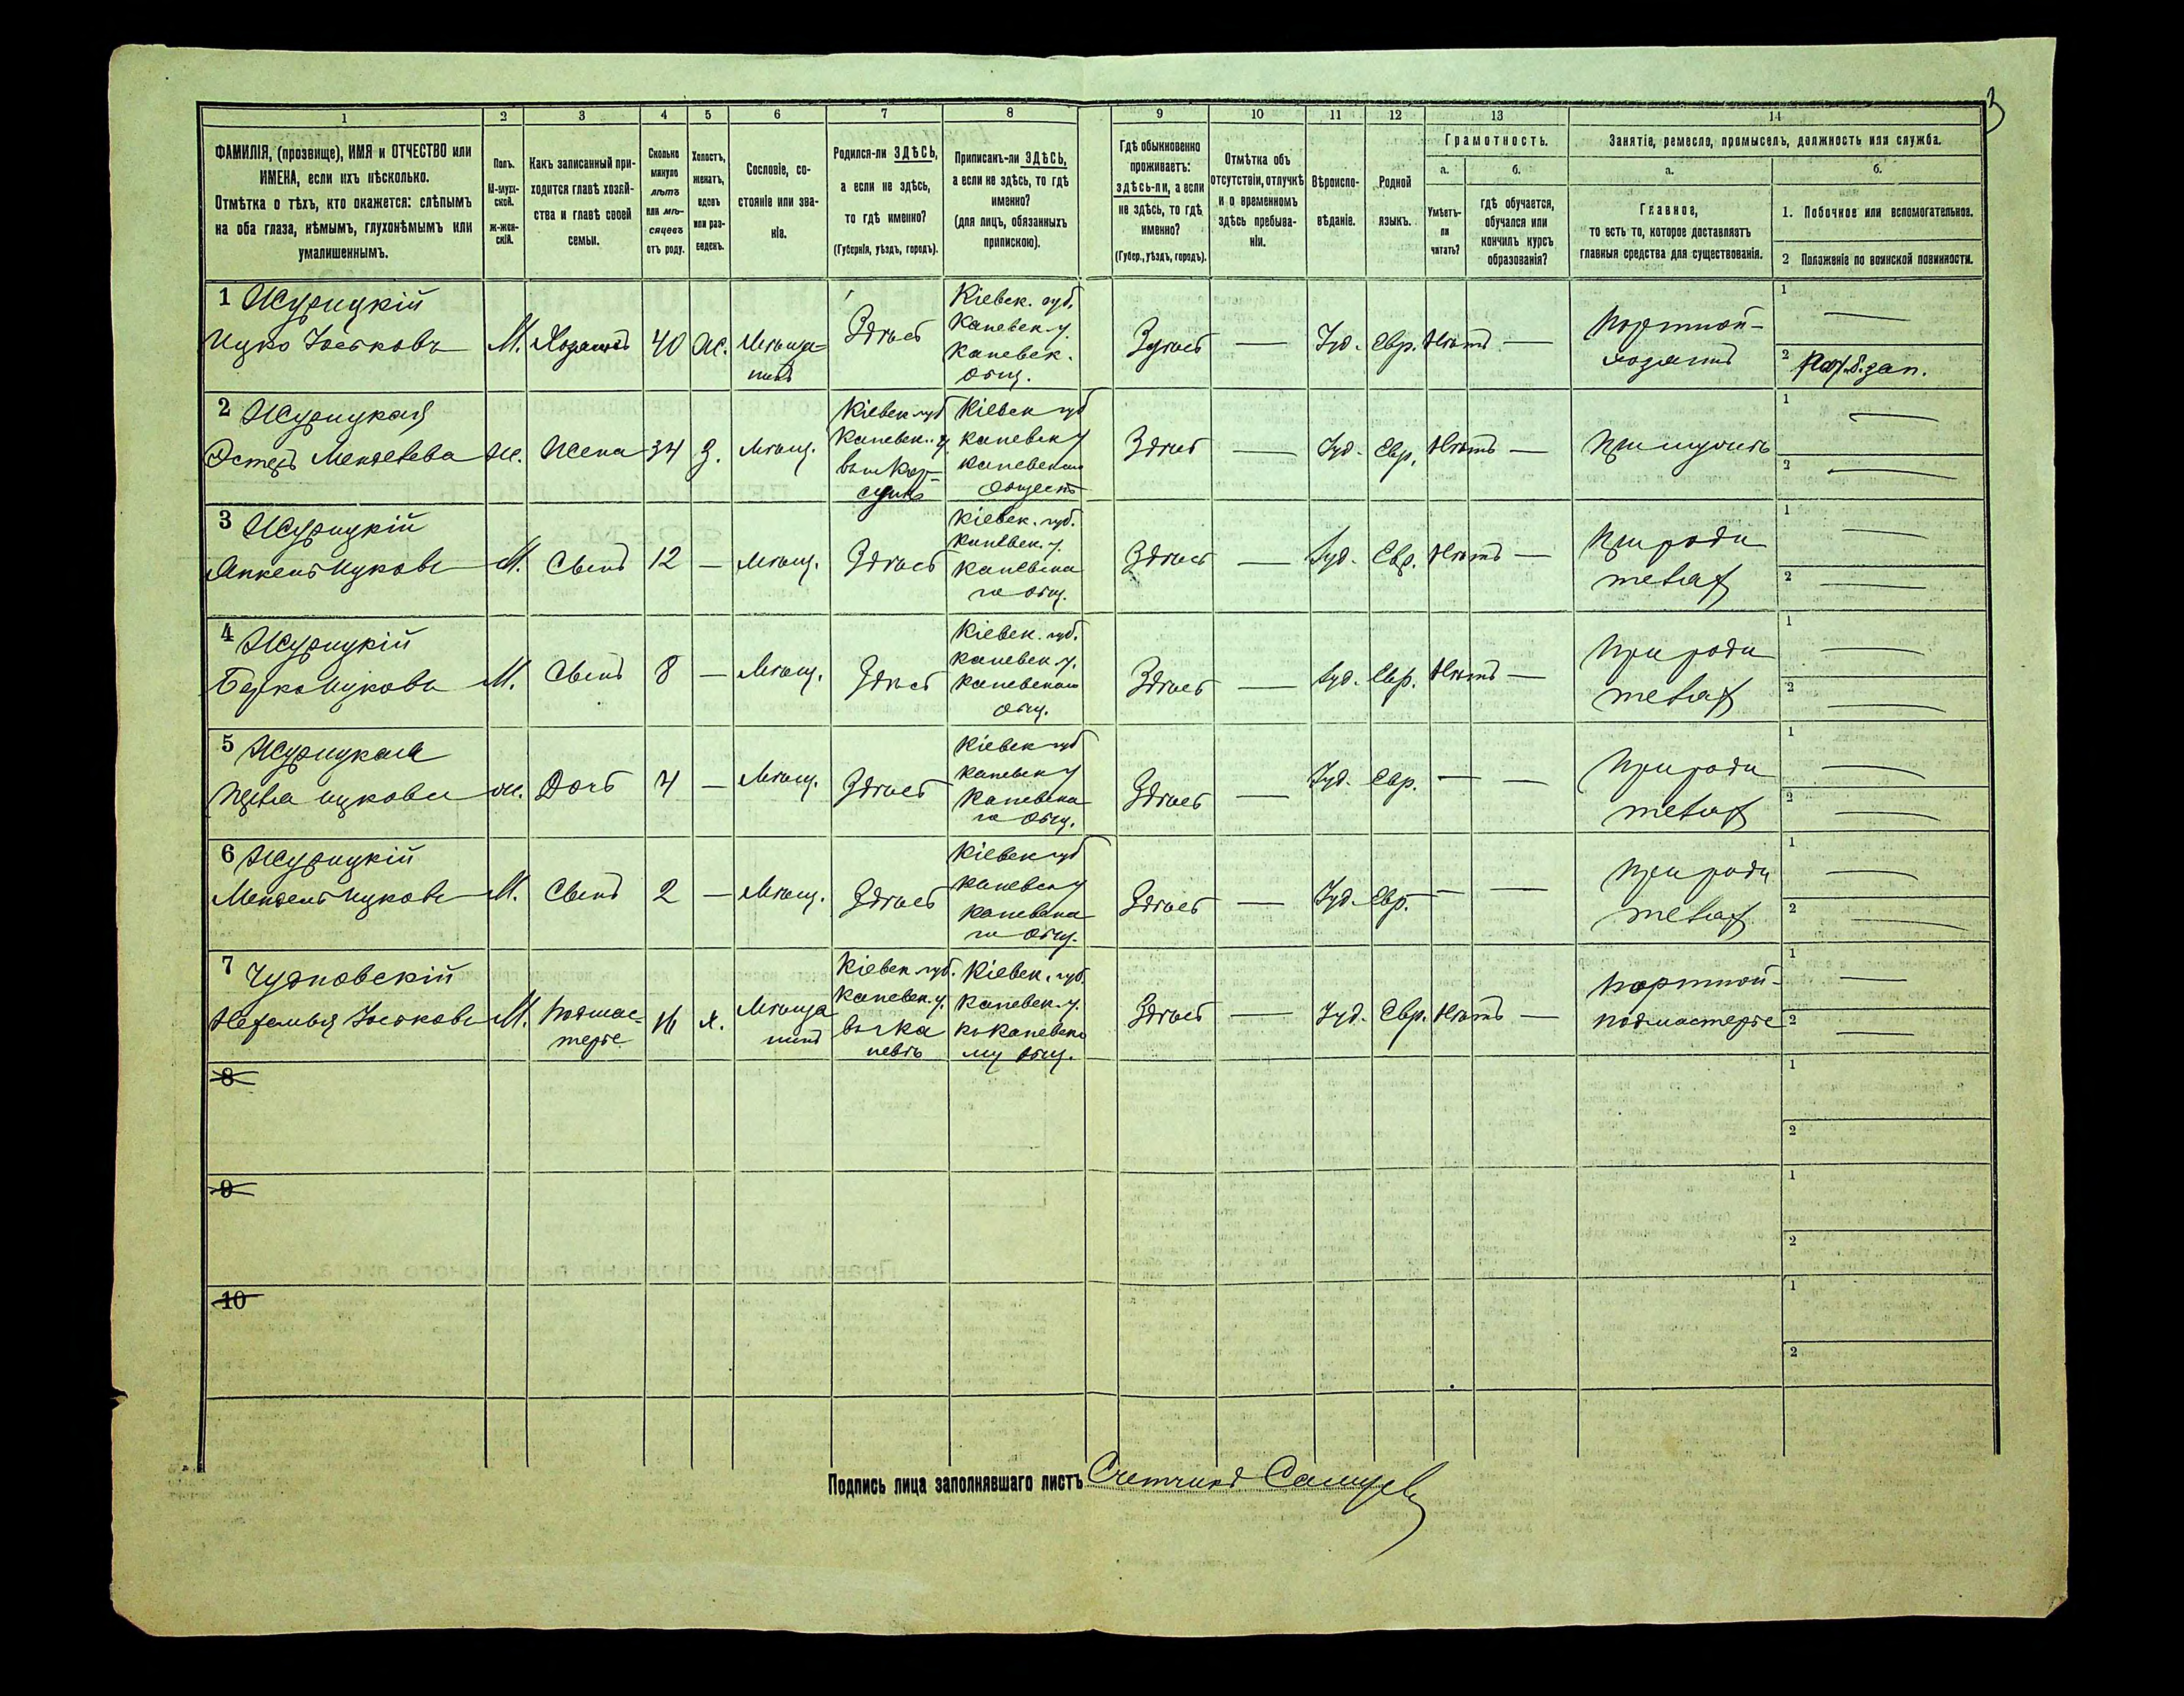 3
1 2 3 4 5 6 7 8 9 10 11 12 13 14
ФАМИЛІЯ, (прозвище), ИМЯ и ОТЧЕСТВО или
ИМЕНА, если ихъ нѣсколько.
Отмѣтка о тѣхъ, кто окажется: слѣпымъ
на оба глаза, нѣмымъ, глухонѣмымъ или
умалишеннымъ.
Полъ.
М-мужс-
ской.
ж-жен-
скій.
Какъ записанный при-
ходится главѣ хозяй-
ства и главѣ своей
семьи.
Сколько
минуло
лѣтъ
или мѣ-
сяцевъ
отъ роду.
Холостъ,
женатъ,
вдовъ
или раз-
веденъ.
Сословіе, со-
стояніе или зва-
ніе.
Родился-ли ЗДѢСЬ,
а если не здѣсь,
то гдѣ именно?
(Губернія, уѣздъ, городъ).
Приписанъ-ли ЗДѢСЬ,
а если не здѣсь, то гдѣ
именно?
(для лицъ, обязанныхъ
припискою).
Гдѣ обыкновенно
проживаетъ:
здѣсь-ли, а если
не здѣсь, то гдѣ
именно?
(Губер., уѣздъ, городъ).
Отмѣтка объ
отсутствіи, отлучкѣ
и о временномъ
здѣсь пребыва-
ніи.
Вѣроиспо-
вѣданіе.
Родной
языкъ.
Грамотность.
а.
Умѣетъ-
ли
читать?
б.
Гдѣ обучается,
обучался или
кончилъ курсъ
образованія?
Занятіе, ремесло, промыселъ, должность или служба.
а.
Главное,
то есть то, которое доставляетъ
главныя средства для существованія.
б.
1. Побочное или вспомогательное.
2 Положеніе по воинской повинности.
1 Журицкій
Ицко Іоськовъ
М. Хозяинъ 40 Ж. Мѣща-
нинъ
Здѣсь
Кіевск. губ.
Каневск. у.
Каневск.
общ.
Здѣсь — Іуд. Евр. Нѣтъ —
Портной-
хозяинъ
1 —
2
2 Журицкая
Эстеръ Менделева
Ж. Жена 34 З. Мѣщ.
Кіевск. губ
Каневск. у.
Кіевск губ
Каневск у
Каневском
Обществ
Здѣсь — Іуд. Евр. Нѣтъ —
При мужѣ
1 —
2 —
3 Журицкій
Янкель Ицковъ
М. Сынъ 12 — Мѣщ. Здѣсь
Кіевск. губ.
Каневск. у.
Каневска
го общ.
Здѣсь — Іуд. Евр. Нѣтъ —
При роди
теляхъ
1 —
2 —
4 Журицкій
Берко Ицковъ
М. Сынъ 8 — Мѣщ. Здѣсь
Кіевск. губ.
Каневск у.
Каневском
общ.
Здѣсь — Іуд. Евр. Нѣтъ —
При роди
теляхъ
1 —
2 —
5 Журицкая
Ицкова
ж. Дочь 4 — Мѣщ. Здѣсь
Кіевск губ
Каневск у
Каневска
го общ.
Здѣсь — Іуд. Евр. — —
При роди
теляхъ
1 —
2 —
6 Журицкій
Мендель Ицковъ
М. Сынъ 2 — Мѣщ. Здѣсь
Кіевск губ
Каневск у
Каневска
го общ.
Здѣсь — Іуд. Евр. — —
При роди
теляхъ
1 —
2 —
7 Чудновскій
Іоськовъ
М. Подмас-
терье
16 х. Мѣща
нинъ
Кіевск губ.
Каневск. у.
въ г Ка
невѣ
Кіевск. губ.
Каневск. у.
къ Каневско
му общ.
Здѣсь — Іуд. Евр. Нѣтъ —
портной-
подмастерье
1 —
2 —
8
1
2
9
1
2
10
1
2
Подпись лица заполнявшаго листъ Счетчикъ